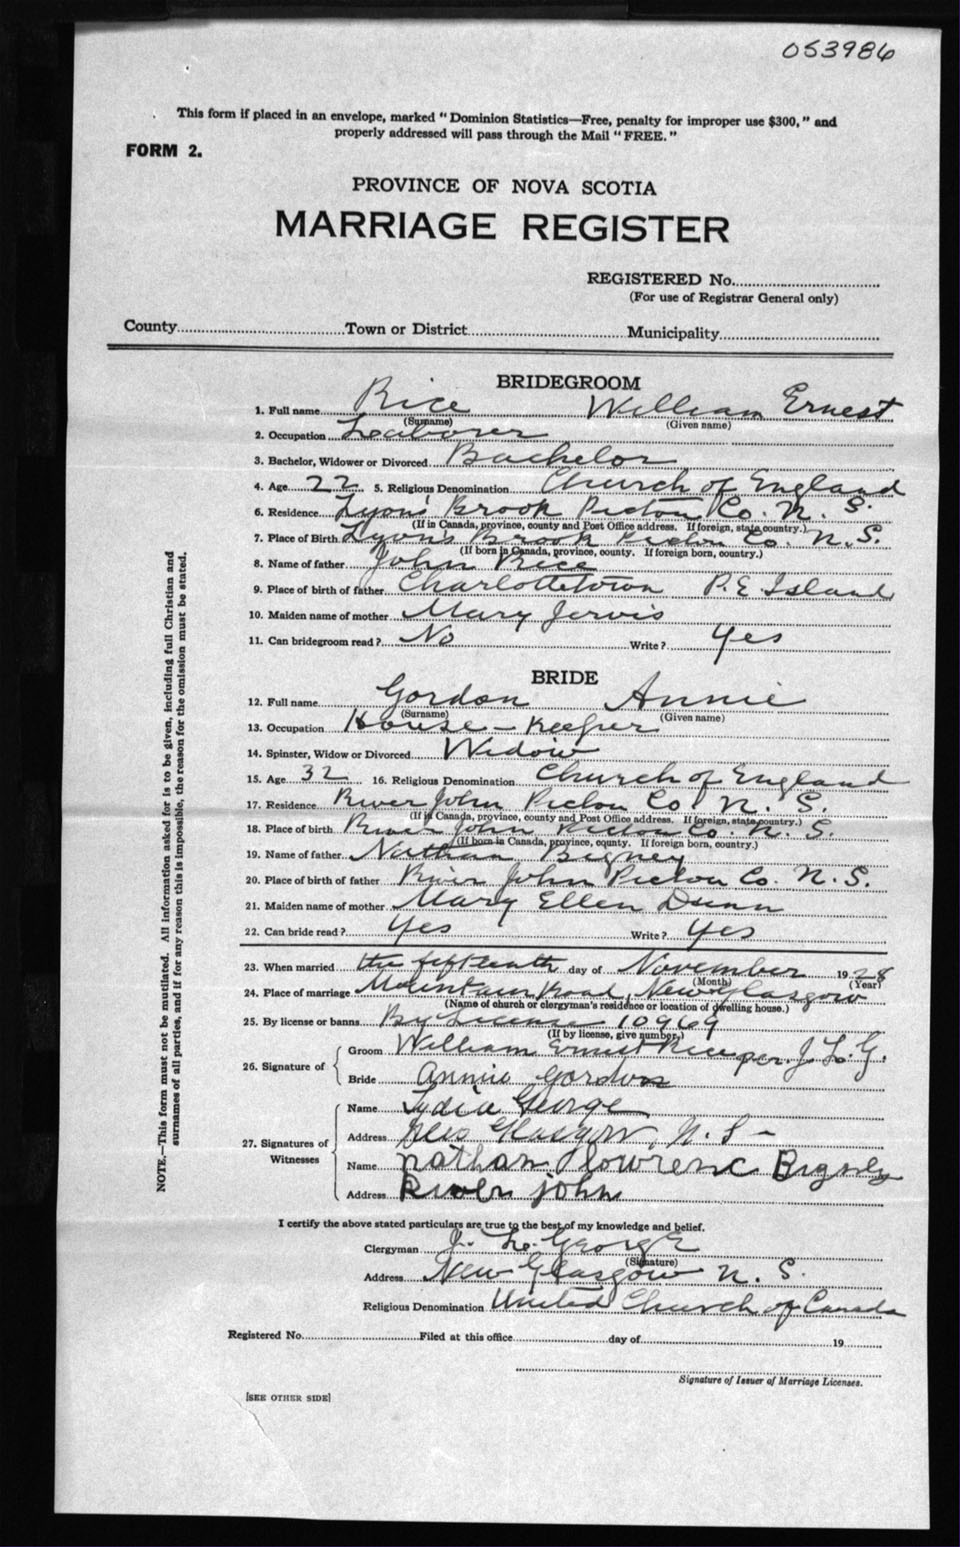 053986
This form if placed in an envelope, marked "Dominion Statistics—Free, penalty for improper use $300," and
properly addressed will pass through the Mail "FREE."
FORM 2.
PROVINCE OF NOVA SCOTIA
MARRIAGE REGISTER
REGISTERED No.
(For use of Registrar General only)
County Town or District Municipality
BRIDEGROOM
1. Full name Rice William Ernest
(Surname) (Given name)
2. Occupation Laborer
3. Bachelor, Widower or Divorced Bachelor
4. Age 22 5. Religious Denomination Church of England
6. Residence Lyons Brook Pictou Co. N. S.
(If in Canada, province, county and Post Office address. If foreign, state country.)
7. Place of Birth Lyon's Brook Pictou Co. N. S.
(If born in Canada, province, county. If foreign born, country.)
8. Name of father John Rice
9. Place of birth of father Charlottetown P. E. Island
10. Maiden name of mother Mary Jervis
11. Can bridegroom read? No Write? Yes
BRIDE
12. Full name Gordon Annie
(Surname) (Given name)
13. Occupation House-Keeper
14. Spinster, Widow or Divorced Widow
15. Age 32 16. Religious Denomination Church of England
17. Residence River John Pictou Co N. S.
(If in Canada, province, county and Post Office address. If foreign, state country.)
18. Place of birth River John Pictou Co. N. S.
(If born in Canada, province, county. If foreign born, country.)
19. Name of father Nathan Bigney
20. Place of birth of father River John Pictou Co. N. S.
21. Maiden name of mother Mary Ellen Dunn
22. Can bride read? Yes Write? Yes
23. When married the fifteenth day of November 1928
(Month) (Year)
24. Place of marriage Mountain Road, New Glasgow
(Name of church or clergyman's residence or location of dwelling house.)
25. By license or banns By License 10969
(If by license, give number.)
26. Signature of
Groom William Ernest Rice per J. L. G.
Bride Annie Gordon
27. Signatures of
Witnesses
Name Lydia George
Address New Glasgow, N. S-
Name nathan lowrenc Bigney
Address River john
I certify the above stated particulars are true to the best of my knowledge and belief.
Clergyman J. L. George
(Signature)
Address New Glasgow N. S.
Religious Denomination United Church of Canada
Registered No. Filed at this office day of 19
Signature of Issuer of Marriage Licenses.
[SEE OTHER SIDE]
NOTE.—This form must not be mutilated. All information asked for is to be given, including full Christian and
surnames of all parties, and if for any reason this is impossible, the reason for the omission must be stated.